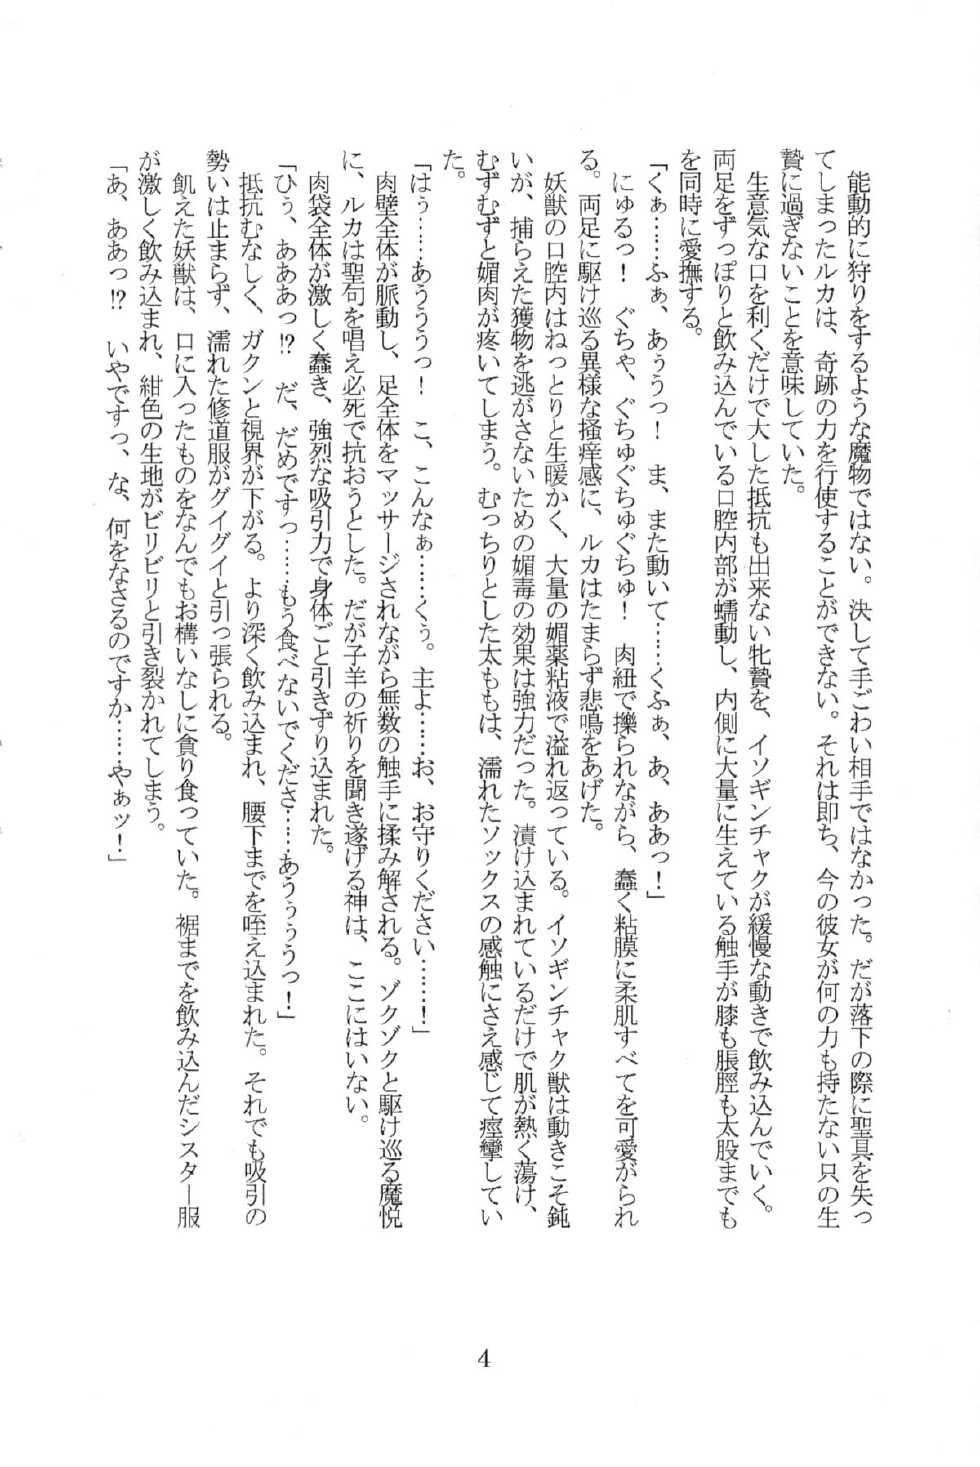 能動的に狩りをするような魔物ではない。決して手ごわい相手ではなかった。だが落下の際に聖具を失っ
てしまったルカは、奇跡の力を行使することができない。それは即ち、今の彼女が何の力も持たない只の生
贄に過ぎないことを意味していた。
生意気な口を利くだけで大した抵抗も出来ない牝贄を、イソギンチャクが緩慢な動きで飲み込んでいく。
両足をずっぽりと飲み込んでいる口腔内部が蠕動し、内側に大量に生えている触手が膝も脹脛も太股までも
を同時に愛撫する。
「くぁ……ふぁ、あぅうっ！　ま、また動いて……くふぁ、あ、ああっ！」
にゅるっ！　ぐちゃ、ぐちゅぐちゅぐちゅ！　肉紐で擽られながら、蠢く粘膜に柔肌すべてを可愛がられ
る。両足に駆け巡る異様な掻痒感に、ルカはたまらず悲鳴をあげた。
妖獣の口腔内はねっとりと生暖かく、大量の媚薬粘液で溢れ返っている。イソギンチャク獣は動きこそ鈍
いが、捕らえた獲物を逃がさないための媚毒の効果は強力だった。漬け込まれているだけで肌が熱く蕩け、
むずむずと媚肉が疼いてしまう。むっちりとした太ももは、濡れたソックスの感触にさえ感じて痙攣してい
た。
「はぅ……あうううっ！　こ、こんなぁ……くぅ。主よ……お、お守りください……！」
肉壁全体が脈動し、足全体をマッサージされながら無数の触手に揉み解される。ゾクゾクと駆け巡る魔悦
に、ルカは聖句を唱え必死で抗おうとした。だが子羊の祈りを聞き遂げる神は、ここにはいない。
肉袋全体が激しく蠢き、強烈な吸引力で身体ごと引きずり込まれた。
「ひぅ、あああっ!?　だ、だめですっ……もう食べないでくださ……あうぅううっ！」
抵抗むなしく、ガクンと視界が下がる。より深く飲み込まれ、腰下までを咥え込まれた。それでも吸引の
勢いは止まらず、濡れた修道服がグイグイと引っ張られる。
飢えた妖獣は、口に入ったものをなんでもお構いなしに貪り食っていた。裾までを飲み込んだシスター服
が激しく飲み込まれ、紺色の生地がビリビリと引き裂かれてしまう。
「あ、ああっ!?　いやですっ、な、何をなさるのですか……やぁッ！」
4